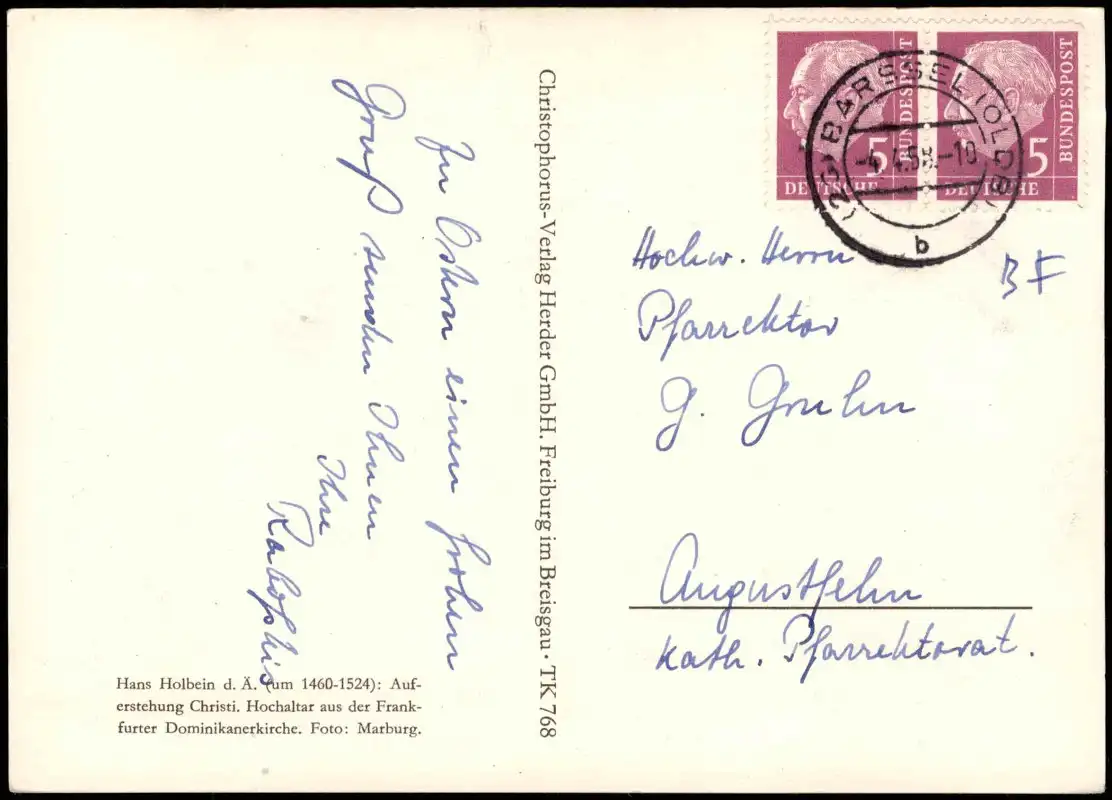 Zu Ostern einen frohen
Gruß senden Ihnen
Ihre
Christophorus-Verlag Herder GmbH. Freiburg im Breisgau · TK 768
Hans Holbein d. Ä. (um 1460-1524): Auf-
erstehung Christi. Hochaltar aus der Frank-
furter Dominikanerkirche. Foto: Marburg.
5 BUNDESPOST
DEUTSCHE
5 BUNDESPOST
DEUTSCHE
(23) BARSSEL (OLDB)
-4. 4.58.-10
b
Hochw. Herrn
Pfarrektor
G. Gruhn
BF
Augustfehn
Kath. Pfarrektorat.